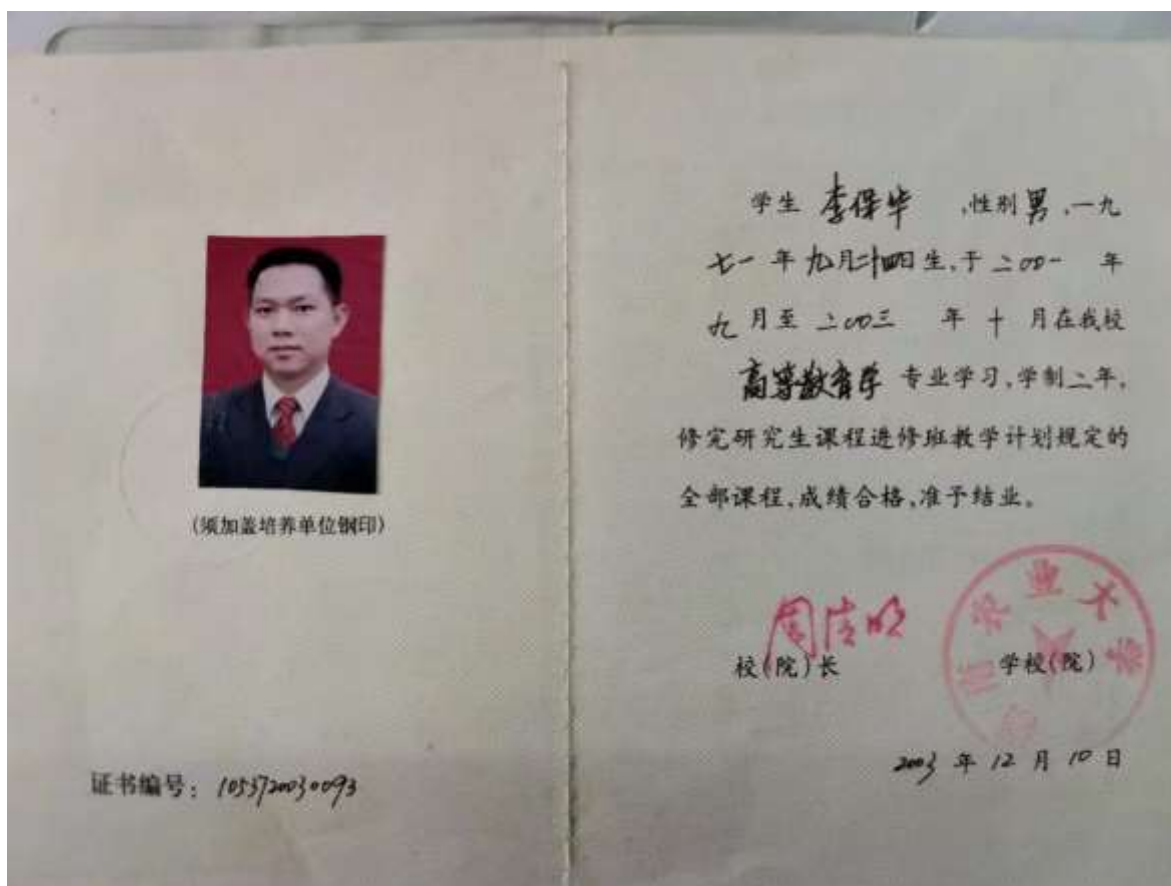 (须加盖培养单位钢印)
证书编号：1053720030093
学生 李保华 ,性别 男 ,一九
七一 年 九月二十四日 生,于 二00一 年
九 月至 二00三 年 十 月在我校
高等教育学 专业学习,学制二年,
修完研究生课程进修班教学计划规定的
全部课程,成绩合格,准予结业。
周清明
校(院)长
学校(院)
南农业大学
2003 年 12 月 10 日